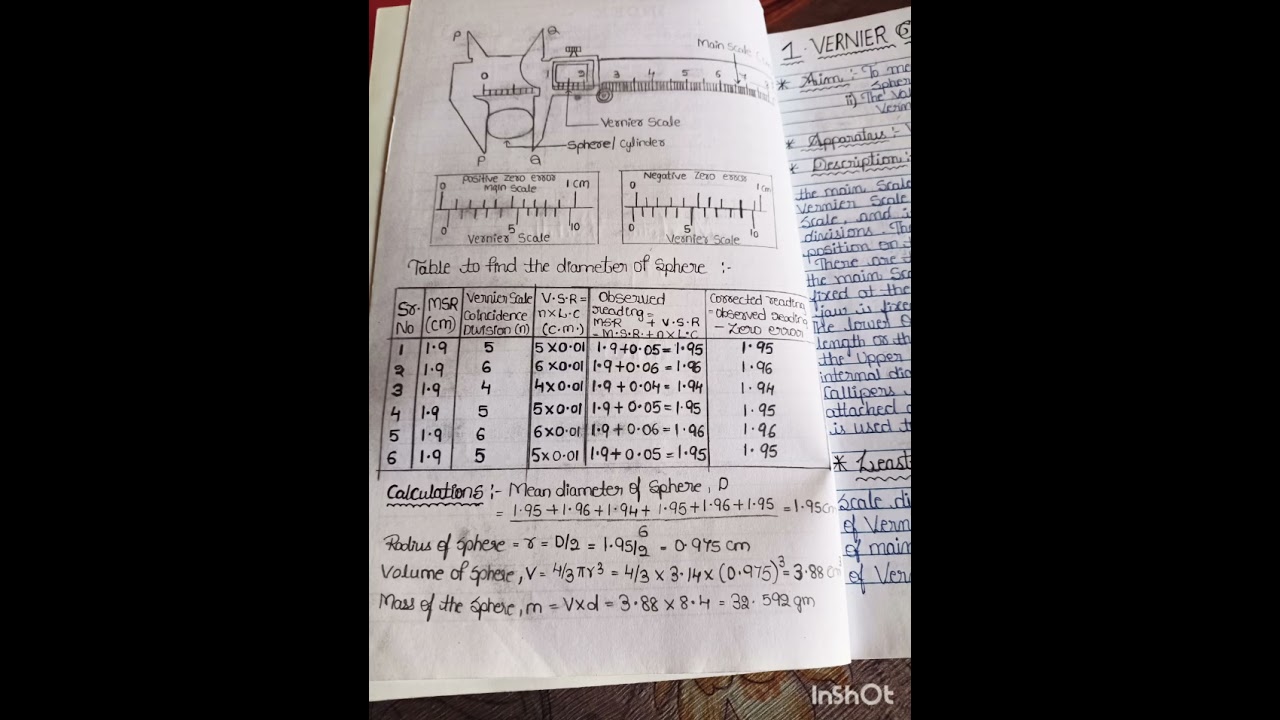 P
Q
Main Scale
0
1
2
3
4
5
6
7
Vernier Scale
Sphere/Cylinder
P
Q
Positive Zero error
Main Scale
0
1 cm
0
5
10
Vernier Scale
Negative Zero error
0
1 cm
0
5
10
Vernier Scale
Table to find the diameter of Sphere :-
Sr. No | MSR (cm) | Vernier Scale Coincidence Division (n) | V.S.R = n×L.C (c.m.) | Observed reading = MSR + V.S.R = M.S.R. + n×L.C | Corrected reading = observed reading - Zero error
1 | 1.9 | 5 | 5×0.01 | 1.9+0.05=1.95 | 1.95
2 | 1.9 | 6 | 6×0.01 | 1.9+0.06=1.96 | 1.96
3 | 1.9 | 4 | 4×0.01 | 1.9+0.04=1.94 | 1.94
4 | 1.9 | 5 | 5×0.01 | 1.9+0.05=1.95 | 1.95
5 | 1.9 | 6 | 6×0.01 | 1.9+0.06=1.96 | 1.96
6 | 1.9 | 5 | 5×0.01 | 1.9+0.05=1.95 | 1.95
Calculations :- Mean diameter of Sphere, D
= 1.95+1.96+1.94+1.95+1.96+1.95 = 1.95cm
6
Radius of sphere = r = D/2 = 1.95/2 = 0.975 cm
Volume of Sphere, V = 4/3 πr³ = 4/3 × 3.14 × (0.975)³ = 3.88 cm³
Mass of the Sphere, m = V×d = 3.88 × 8.4 = 32.592 gm
1. VERNIER
* Aim :- To
ii) The
* Apparatus :-
* Description :
the main Scale
Vernier Scale
Scale, and
divisions. The
position on
There are
the main
fixed at the
jaw is
The lower
length or
the Upper
internal
Callipers
attached
is used
* Least
Scale
of
of main
of
InShOt